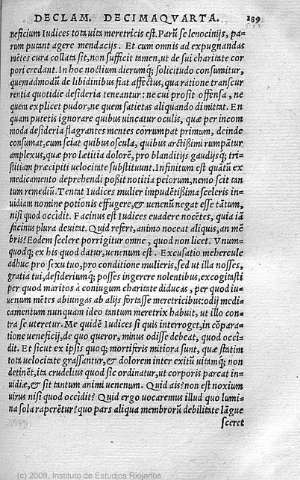 DECLAM. DECIMAQVARTA. 139
neficium Iudices tota uita meretricis est. Parū se lenocinijs, pa-
rum putant agere mendacijs. Et cum omnis ad expugnandas
mētes cura collata sit, non sufficit tamen, ut de sui charitate cor
pori credant. In hoc noctium dierumq; solicitudo consumitur,
quemadmodū de libidinibus fiat affectus, qua ratione transcur
rentia quotidie desideria teneantur: ne cui prosit offensa, ne
quem explicet pudor, ne quem satietas aliquando dimittat. En
quam putetis ignorare quibus uincatur oculis, quæ per incom
moda desideria flagrantes mentes corrumpat primum, deinde
consumat, cum sciat quibus oscula, quibus arctissimi rumpātur
amplexus, quæ pro lætitia dolorē, pro blanditijs gaudijsq; tri-
stitiam præcipiti uelocitate substituant. Infinitum est quātū ex
medicamento deprehendi possit notitia peiorum, nemo scit tan
tum remediū. Tentat Iudices mulier impudētissima sceleris in-
uidiam nomine potionis effugere, & uenenū negat esse tātum,
nisi quod occidit. Facinus est Iudices euadere nocētes, quia iā
fecimus plura deuitat. Quid refert, animo noceat aliquis, an mē
bris: Eodem scelere porrigitur omne, quod non licet. Vnum-
quodq; ex his quod datur, uenenum est. Excusatio mehercule
adhuc pro sexu tuo, pro conditione mulieris, sed ut illa nosses,
gratia tui, desideriumq; posses ingerere nolentibus, excogitasti
per quod maritos à coniugum charitate diducas, per quod iu-
uenum mētes abiungas ab alijs fortasse meretricibus: odij medi
camentum nunquam ideo tantum meretrix habuit, ut illo con-
tra se uteretur. Me quidē Iudices si quis interroget, in cōpara-
tione ueneficij, de quo queror, minus odisse debeat, quod occi-
dit. Et sicut ex ipsis quoq; mortiferis mitiora sunt, quæ statim
tota uelocitate grassantur, & dolorem inter exitū uitamq; non
detinēt, ita crudelius quod sic ordinatur, ut corporis parcat in-
uidiæ, & sit tantum animi uenenum. Quid ais? non est noxium
uirus nisi quod occidit? Quid ergo uocaremus illud quo lumi-
na sola raperetur? quo pars aliqua membrorū debilitate lāgue
sceret
(c) 2009, Instituto de Estudios Riojanos